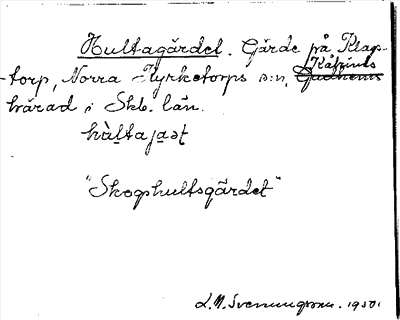 Hultagärdet. Gärde på Klags-
torp, Norra Kyrketorps s:n, Kåkinds
härad i Skb. län.
hùltajaət
"Skogshultsgärdet"
L.M. Svenungsson. 1930.